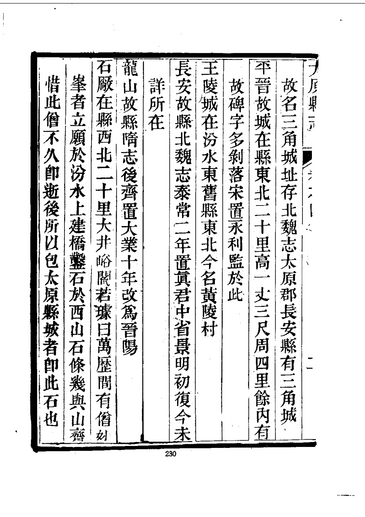 太原縣志
故名三角城址存北魏志太原郡長安縣有三角城
平晉故城在縣東北二十里高一丈三尺周四里餘內有
故碑字多剝落宋置永利監於此
王陵城在汾水東舊縣東北今名黃陵村
長安故縣北魏志泰常二年置眞君中省景明初復今未
詳所在
龍山故縣隋志後齊置大業十年改爲晉陽
石厰在縣西北二十里大井峪閻若璩曰萬歷間有僧妙
峯者立願於汾水上建橋鑿石於西山石條幾與山齊
惜此僧不久卽逝後所以包太原縣城者卽此石也
230